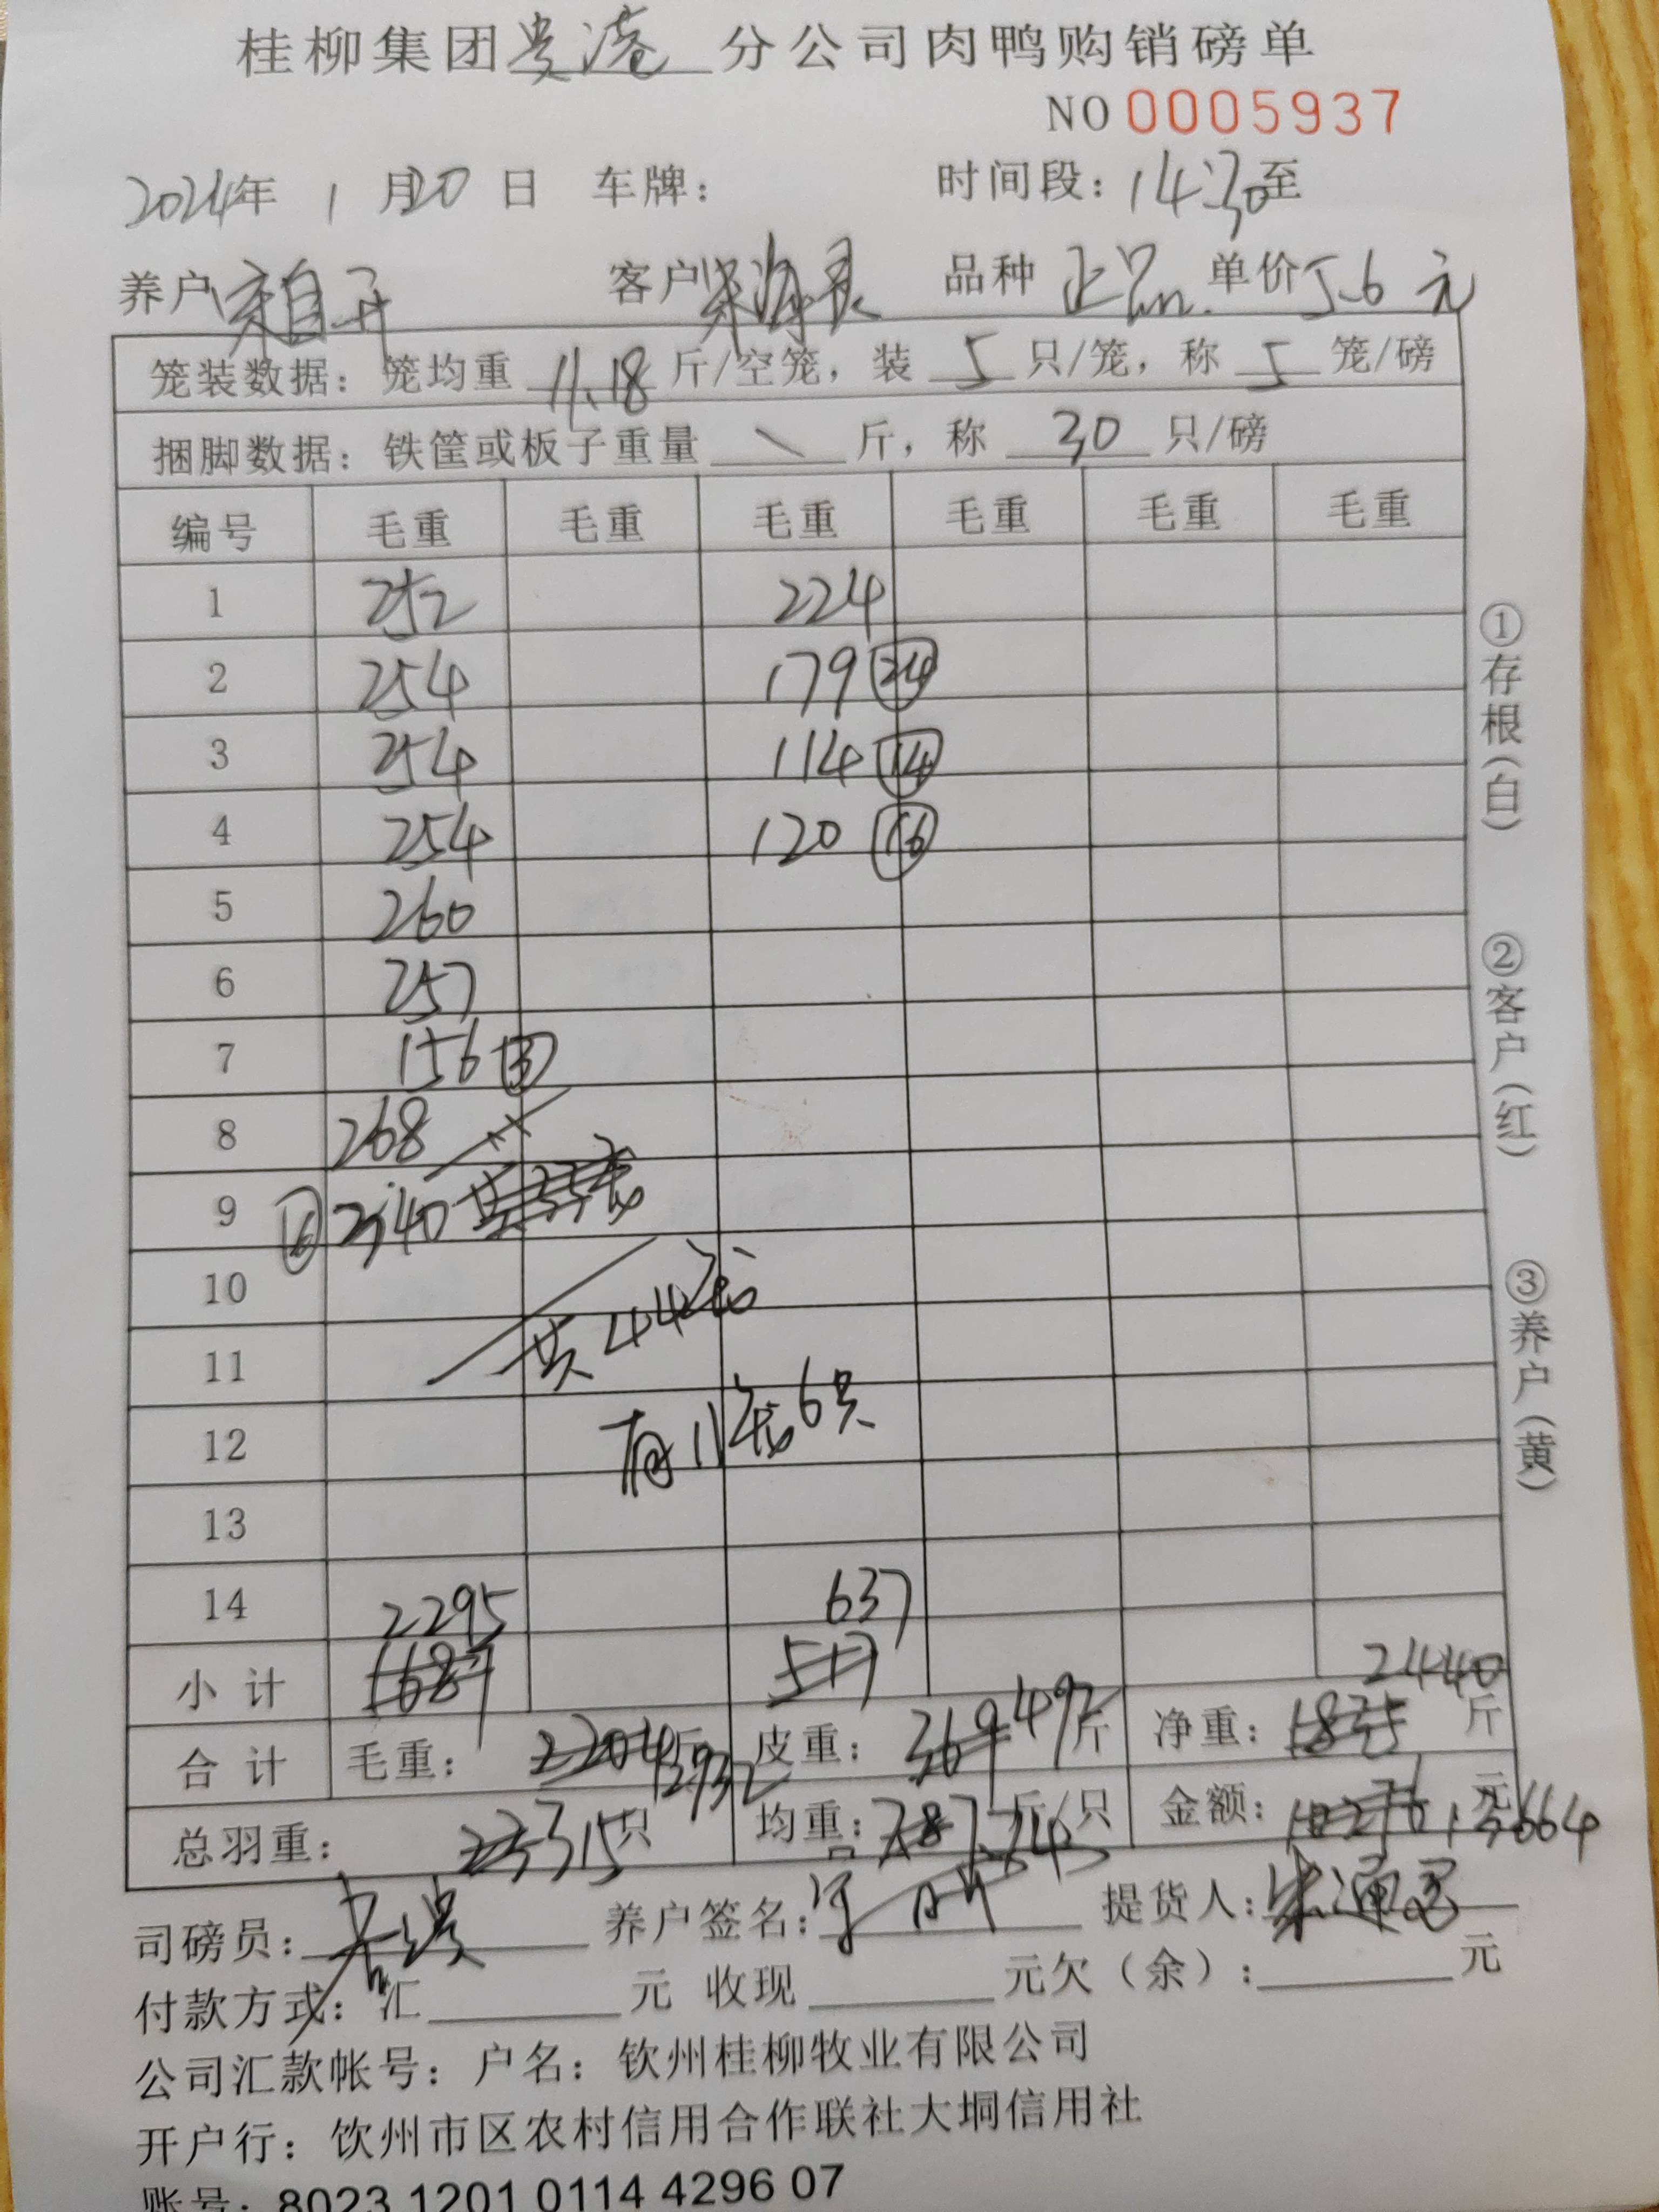 桂柳集团贵港分公司肉鸭购销磅单
NO 0005937
2024年 1 月20 日 车牌: 时间段: 14:30至
养户 客户 品种 正品 单价5.6 元
笼装数据: 笼均重 11.18 斤/空笼, 装 5 只/笼, 称 5 笼/磅
捆脚数据: 铁筐或板子重量 \ 斤, 称 30 只/磅
编号 毛重 毛重 毛重 毛重 毛重 毛重
1 252 224
2 254 179 24
3 254 114 14
4 254 120 16
5 260
6 257
7 156 ③
8 268
9 340
10 共44笼
11
12 有11笼6只
13
14 2295 637
小计 1687 517 2440
合计 毛重: 2204 2932 皮重: 369 492 斤 净重: 1835 斤
总羽重: 315只 均重: 7.87 7.746 斤/只 金额: 10276 13664 元
司磅员: 养户签名: 提货人:
付款方式: 汇 元 收现 元欠(余): 元
公司汇款帐号: 户名: 钦州桂柳牧业有限公司
开户行: 钦州市区农村信用合作联社大垌信用社
账号: 8023 1201 0114 4296 07
①存根(白)
②客户(红)
③养户(黄)